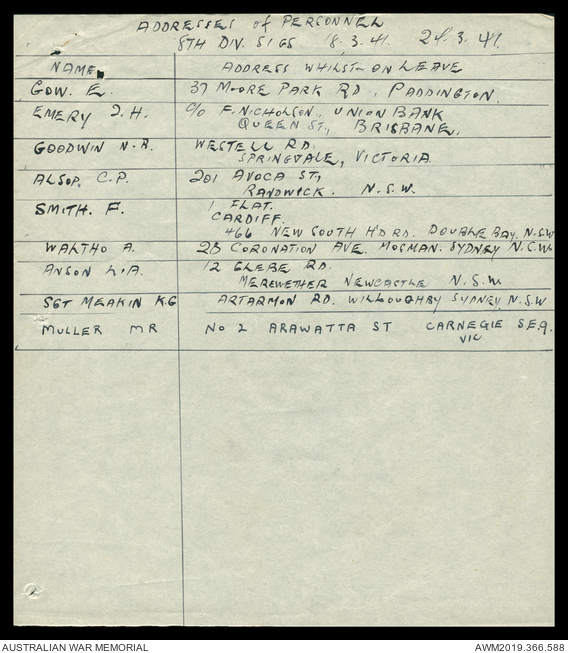 ADDRESSES of PERSONNEL
8TH DIV. SIGS 18.3.41. 24.3.41.
NAME ADDRESS WHILST ON LEAVE
GOW. E. 37 MOORE PARK RD, PADDINGTON.
EMERY J.H. C/O F. NICHOLSON, UNION BANK
QUEEN ST, BRISBANE.
GOODWIN N.R. WESTELL RD.
SPRINGVALE, VICTORIA
ALSOP. C.P. 201 AVOCA ST,
RANDWICK. N.S.W.
SMITH. F. 1 FLAT.
CARDIFF.
466 NEW SOUTH HD RD. DOUBLE BAY. N.S.W
WALTHO A. 28 CORONATION AVE. MOSMAN. SYDNEY N.S.W.
ANSON L.A. 12 GLEBE RD.
MEREWETHER NEWCASTLE N.S.W.
SGT MEAKIN K.G ARTARMON RD. WILLOUGHBY SYDNEY. N.S.W
MULLER MR NO 2 ARAWATTA ST CARNEGIE S.E.9.
VIC
AUSTRALIAN WAR MEMORIAL AWM2019.366.588